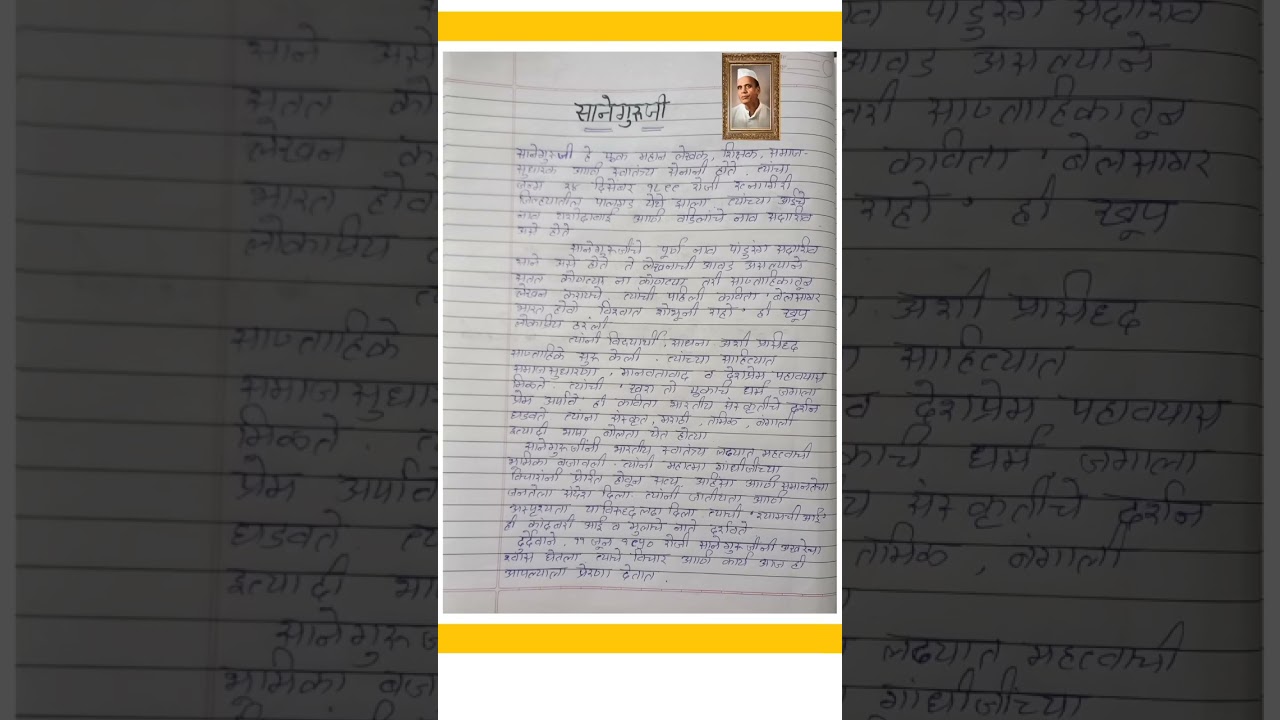 सानेगुरुजी
सानेगुरुजी हे एक महान लेखक, शिक्षक, समाज-
सुधारक आणि स्वातंत्र्य सेनानी होते. त्यांचा
जन्म २४ डिसेंबर १८९९ रोजी रत्नागिरी
जिल्ह्यातील पालगड येथे झाला. त्यांच्या आईचे
नाव यशोदाबाई आणि वडिलांचे नाव सदाशिव
असे होते
सानेगुरुजींचे पूर्ण नाव पांडुरंग सदाशिव
साने असे होते ते लेखनाची आवड असल्याने
सतत कोणत्या ना कोणत्या तरी साप्ताहिकातून
लेखन करायचे त्यांची पहिली कविता ' बेलसागर
भारत होवो, विश्वात शोभूनी राहो ' ही खूप
लोकप्रिय ठरली
त्यांनी विद्यार्थी, साधना अशी प्रसिध्द
साप्ताहिके सुरू केली. त्यांच्या साहित्यात
समाजसुधारणा, मानवतावाद व देशप्रेम पहावयास
मिळते. त्यांची ' खरा तो एकचि धर्म जगाला
प्रेम अर्पावे ही कविता भारतीय संस्कृतीचे दर्शन
घडवते त्यांना संस्कृत, मराठी, तमिळ, बंगाली
इत्यादी भाषा बोलता येत होत्या
सानेगुरुजींनी भारतीय स्वातंत्र्य लढ्यात महत्वाची
भूमिका बजावली. त्यांनी महात्मा गांधीजींच्या
विचारांनी प्रेरित होवून सत्य, अहिंसा आणि समानतेचा
जनतेला संदेश दिला. त्यांनी जातीयता आणि
अस्पृश्यता याविरुध्द लढा दिला त्यांची 'श्यामची आई'
ही कादंबरी आई व मुलाचे नाते दर्शवते
दुर्दैवाने, ११ जून १९५० रोजी सानेगुरुजींनी अखेरचा
श्वास घेतला त्यांचे विचार आणि कार्य आज ही
आपल्याला प्रेरणा देतात.